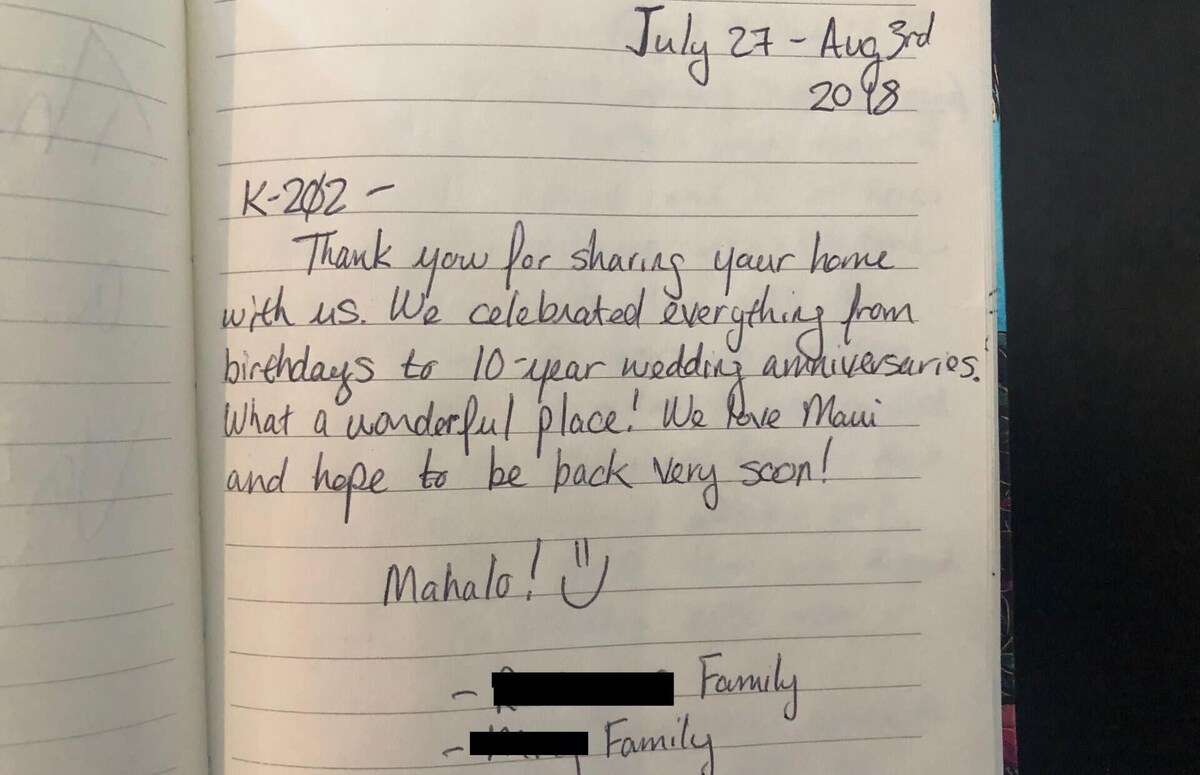 July 27 - Aug 3rd
2018
K-202 -
Thank you for sharing your home
with us. We celebrated everything from
birthdays to 10-year wedding anniversaries.
What a wonderful place! We love Maui
and hope to be back very soon!
Mahalo!
- Family
- Family